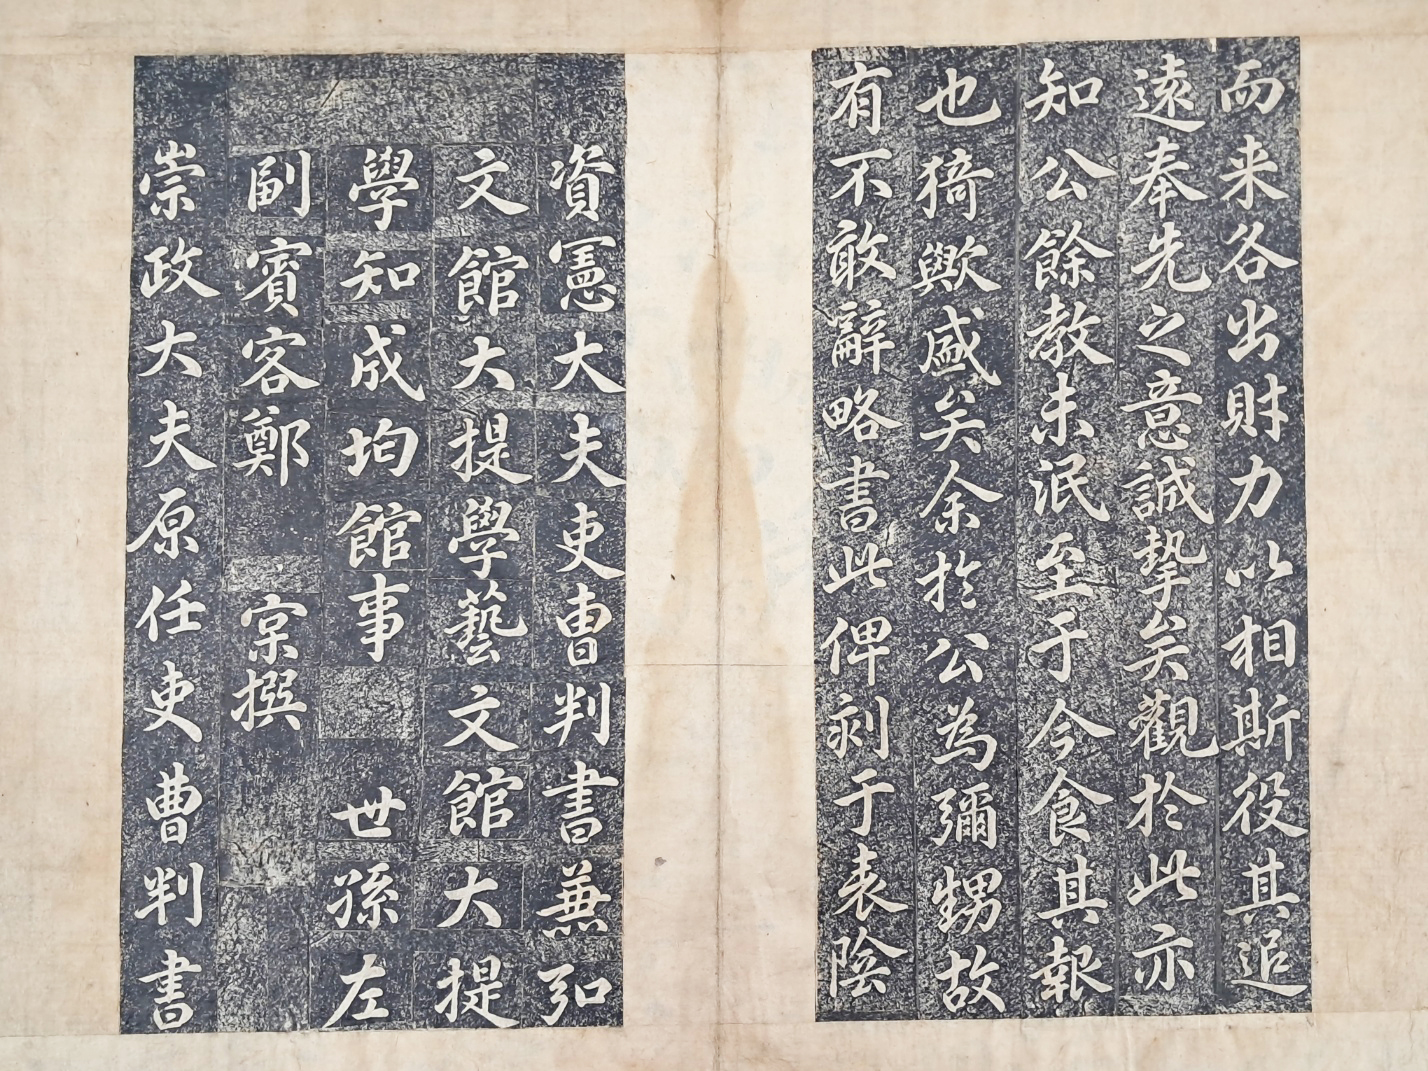 而来各出財力以相斯役其追
遠奉先之意誠摯矣觀於此亦
知公餘教未泯至于今食其報
也猗歟盛矣余於公為彌甥故
有不敢辭略書此俾剡于表陰
資憲大夫吏曹判書兼弘
文館大提學藝文館大提
學知成均館事 世孫左
副賓客鄭 宲撰
崇政大夫原任吏曹判書